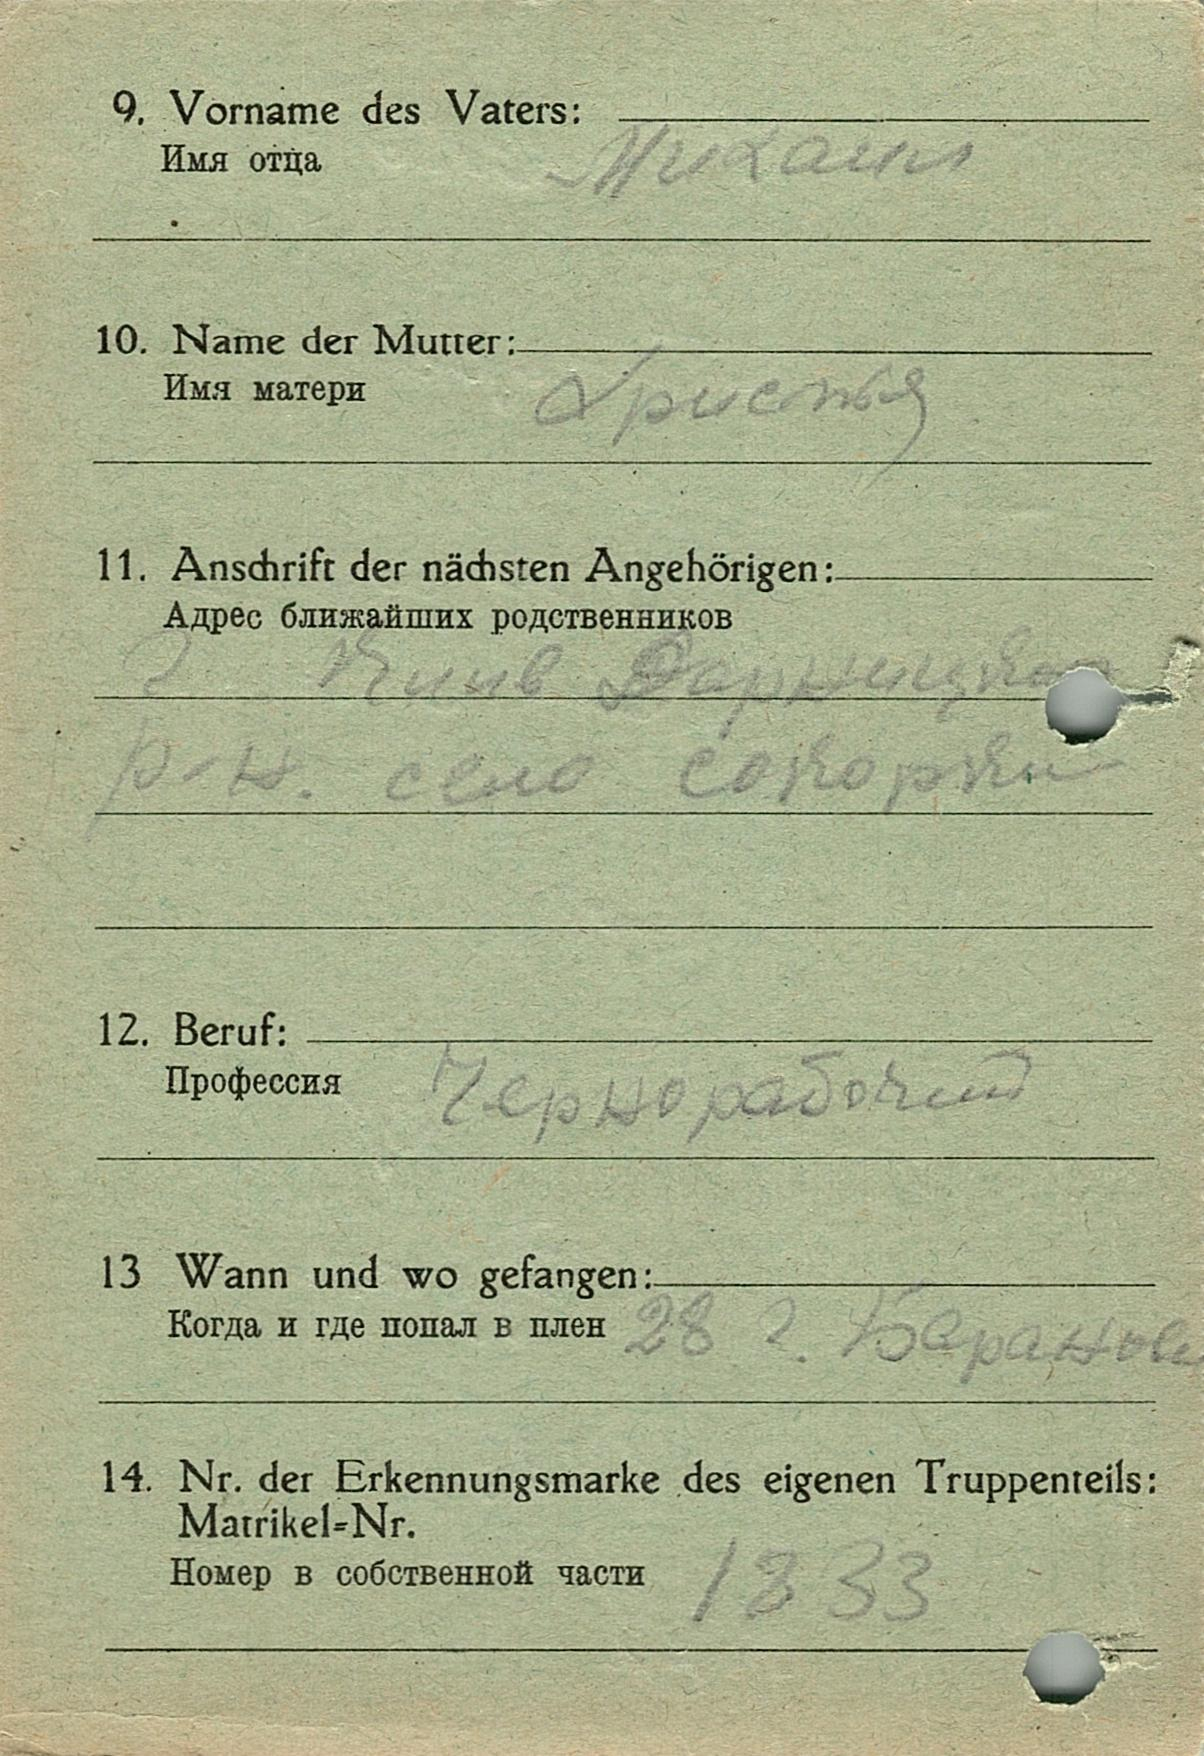 9. Vorname des Vaters:
Имя отца Михаил
10. Name der Mutter:
Имя матери Христья
11. Anschrift der nächsten Angehörigen:
Адрес ближайших родственников
г Киив Дарницкая
р-н. село сокорки
12. Beruf:
Профессия Чернорабочий
13 Wann und wo gefangen:
Когда и где попал в плен 28 г. Баранови
14. Nr. der Erkennungsmarke des eigenen Truppenteils:
Matrikel=Nr.
Номер в собственной части 1833